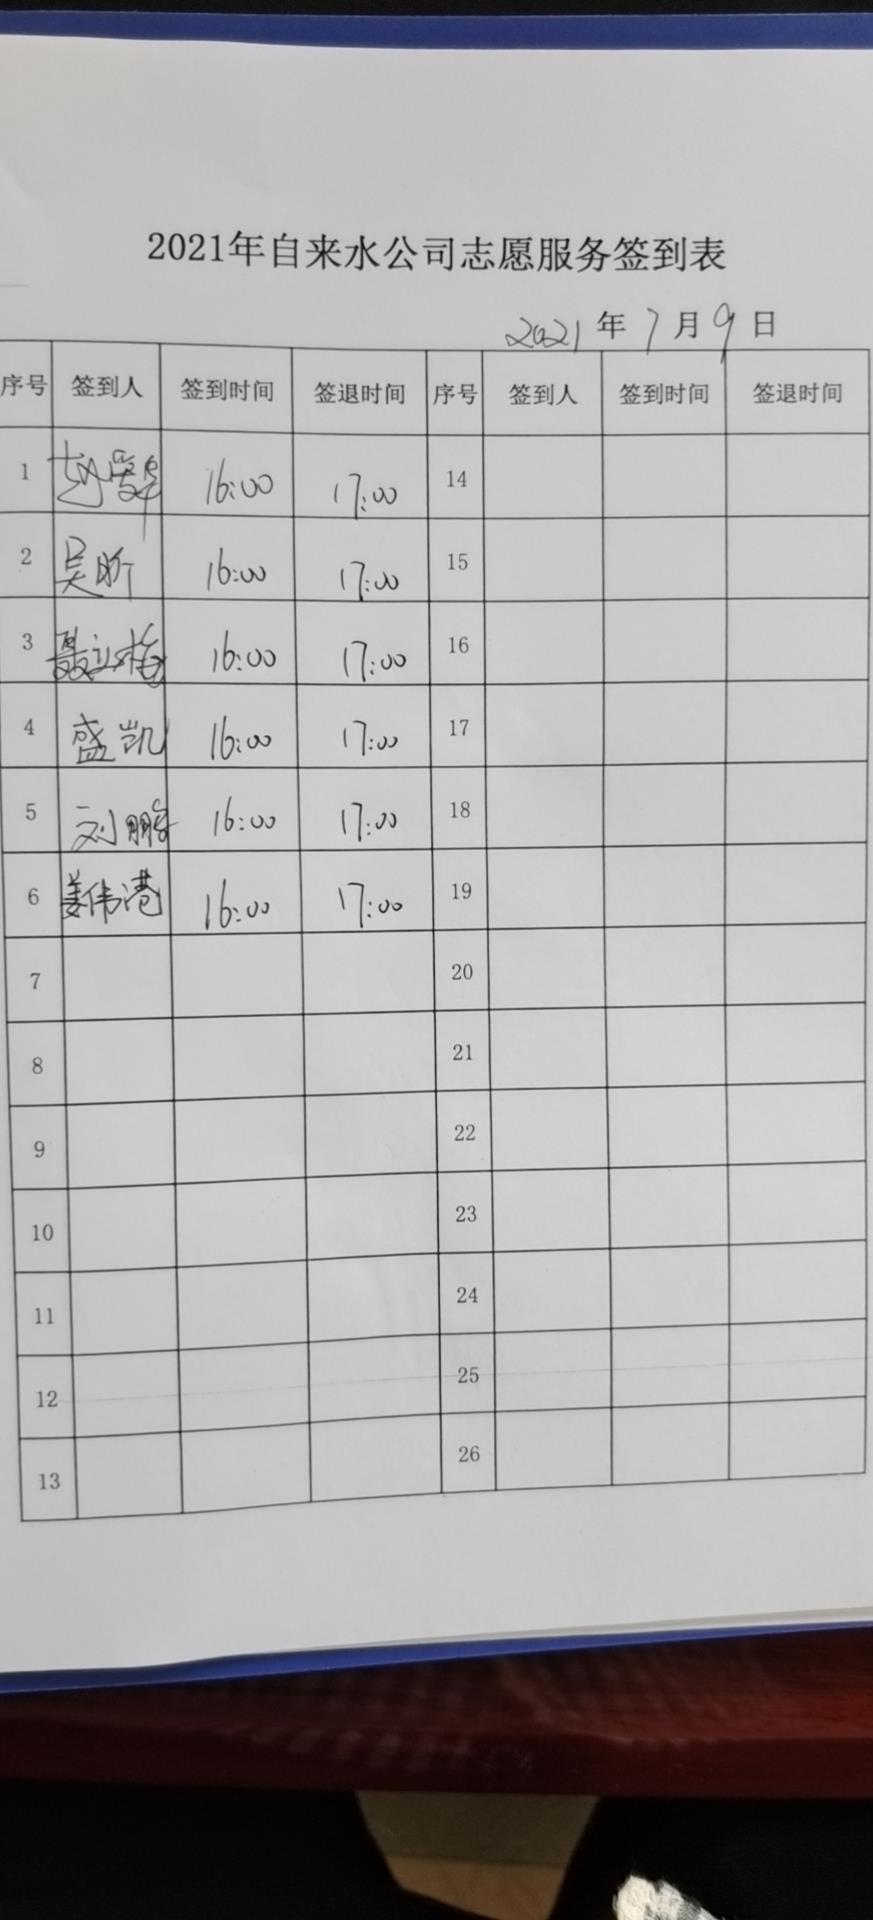 2021年自来水公司志愿服务签到表
2021年7月9日
序号 签到人 签到时间 签退时间 序号 签到人 签到时间 签退时间
1 赵爱华 16:00 17:00 14
2 吴昕 16:00 17:00 15
3 聂立梅 16:00 17:00 16
4 盛凯 16:00 17:00 17
5 刘鹏 16:00 17:00 18
6 姜伟港 16:00 17:00 19
7 20
8 21
9 22
10 23
11 24
12 25
13 26